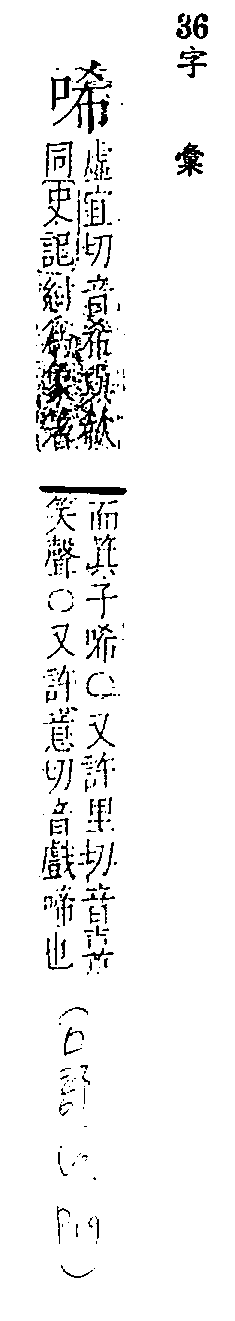 36
字彙
唏
虛宜切音希與欷
同史記紂為象箸
而箕子唏○又許里切音喜
笑聲○又許意切音戲啼也